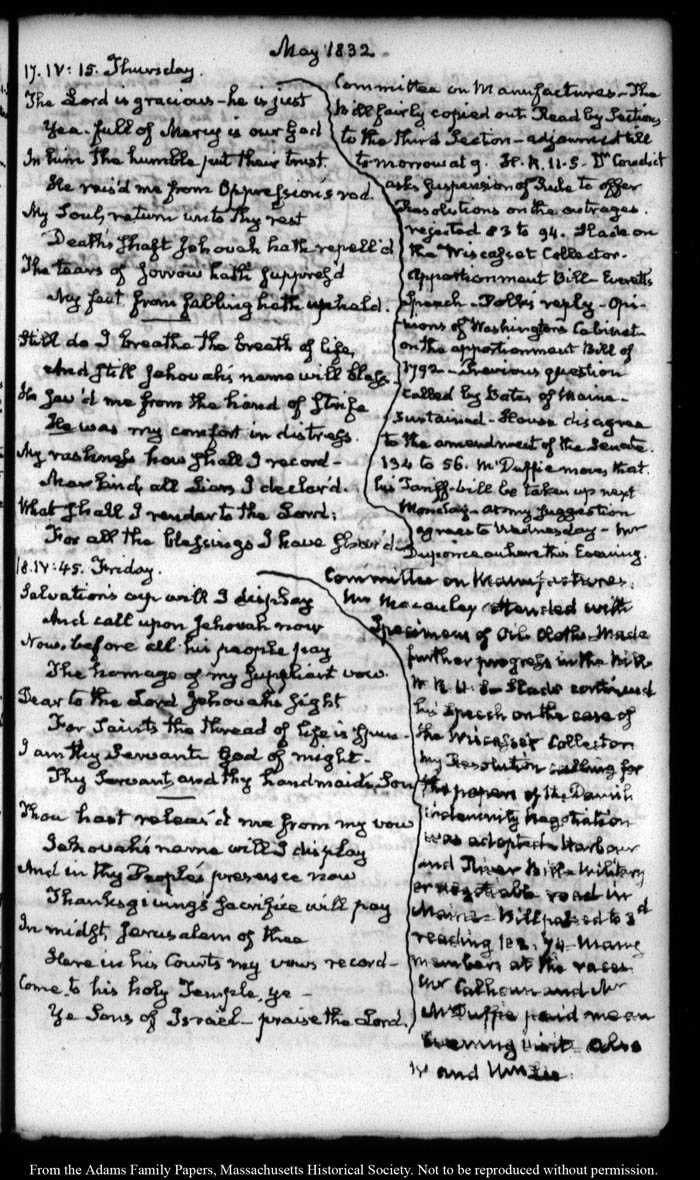 May 1832.
17. IV: 15. Thursday.
The Lord is gracious – he is just
Yea – full of Mercy is our God
In him the humble put their trust.
He rais'd me from Oppression's rod.
My Soul, return unto thy rest
Death's shaft Jehovah hath repell'd
The tears of sorrow hath suppress'd
My feet from falling hath upheld.
Still do I breathe the breath of life,
And still Jehovah's name will bless
He sav'd me from the hand of Strife
He was my comfort in distress.
My rashness how shall I record –
Mankind, all Liars I declar'd.
What shall I render to the Lord:
For all the blessings I have shar'd –
Committee on Manufactures – The
Bill fairly copied out. Read by Sections
to the third Section – adjourned till
to-morrow at 9. H. R. U. S. Dr Condict
asks suspension of Rule to offer
Resolutions on the outrages.
rejected 83 to 94. Slade on
the Wiscasset Collector.
Apportionment Bill – Everett's
Speech – Polk's reply – Opi-
nions of Washington's Cabinet
on the apportionment Bill of
1792 – Previous question
called by Bates of Maine –
sustained – House disagree
to the amendment of the Senate.
134 to 56. McDuffie moves that
his Tariff-bill be taken up next
Monday – at my suggestion
agrees to Wednesday – Mr
Duponceau here this Evening.
18. IV: 45. Friday.
Salvation's cup will I display
And call upon Jehovah now
Now, before all his people pay
The homage of my suppliant vow.
Dear to the Lord Jehovah's sight
For Saints the thread of life is spun –
I am thy Servant God of might –
Thy Servant, and thy handmaid's Son
Thou hast releas'd me from my vow
Jehovah's name will I display
And in thy People's presence now
Thanksgiving's sacrifice will pay
In midst, Jerusalem of thee
Here in his Courts my vows record –
Come to his holy Temple, ye –
Ye Sons of Israel – praise the Lord.
Committee on Manufactures.
Mr Macauley attended with
Specimens of Oil Cloths. Made
further progress in the Bill
H. R. U. S – Slade continued
his speech on the case of
the Wiscasset Collector
My Resolution calling for
the papers of the Danish
indemnity negotiation
was adopted – Harbour
and River Bill – Military
or negotiable road in
Maine – Bill passed to 3d
reading 74 – Many
members at the races.
Mr Calhoun and Mr
McDuffie paid me an
Evening visit – also
and
From the Adams Family Papers, Massachusetts Historical Society. Not to be reproduced without permission.